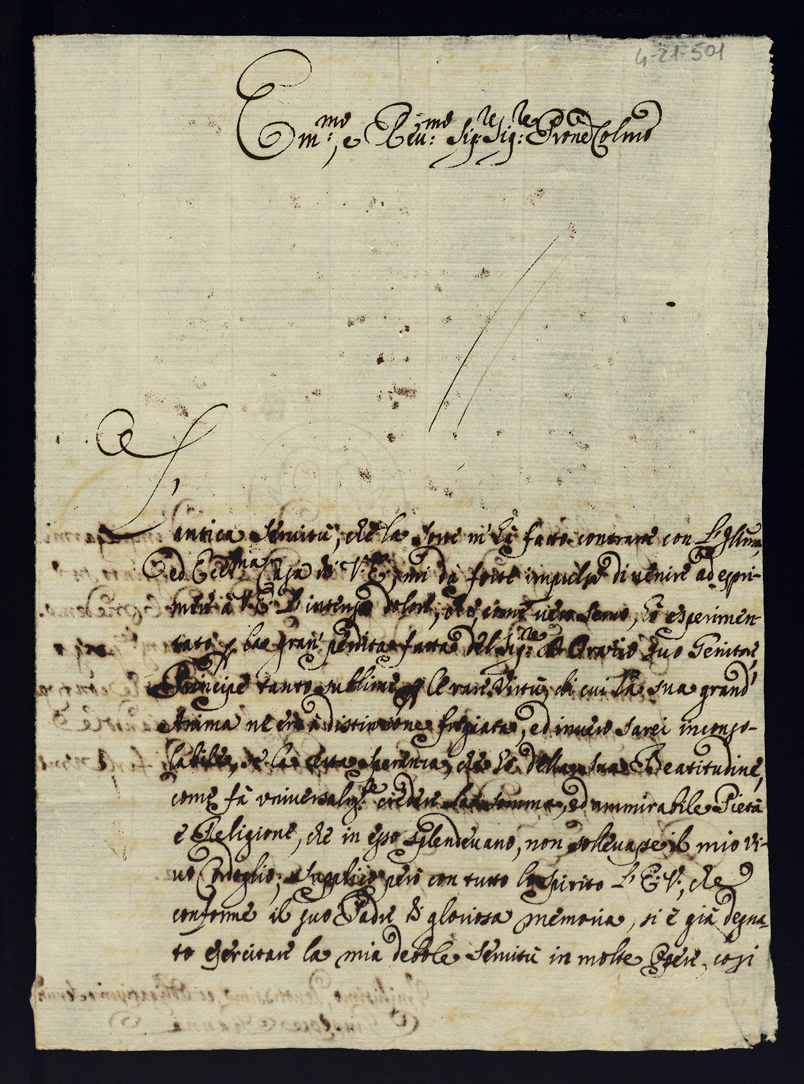 4-21-501
Em.mo, e Reu.mo Sig.re Sig.re Prone Colmo
L'
antica seruitù, che la sorte m'hà fatto contrare con L'Illma,
ed Ecc.ma Casa di V. E. mi dà forte impulso di uenire ad espri-
mere à V. E. l'intenso dolore, che, come uero seruo, hò esperimen-
tato p la gran perdita fatta del Sig.re D. Oratio suo Genitore,
Principe tanto sublime p le rare Virtù, di cui la sua grand'
Anima ne era à distinzione fregiata, ed inuero sarei inconso-
labile, se la certa speranza, che hò della sua Beatitudine,
come fà vniversalm.te credere la somma, ed ammirabile Pietà
e Religione, che in esso splendeuano, non solleuasse il mio vi-
uo Cordoglio; supplico però con tutto lo spirito L'E. V., che
conforme il suo Padre di gloriosa memoria, si è già degna-
to esercitare la mia debole seruitù in molte Opere, così